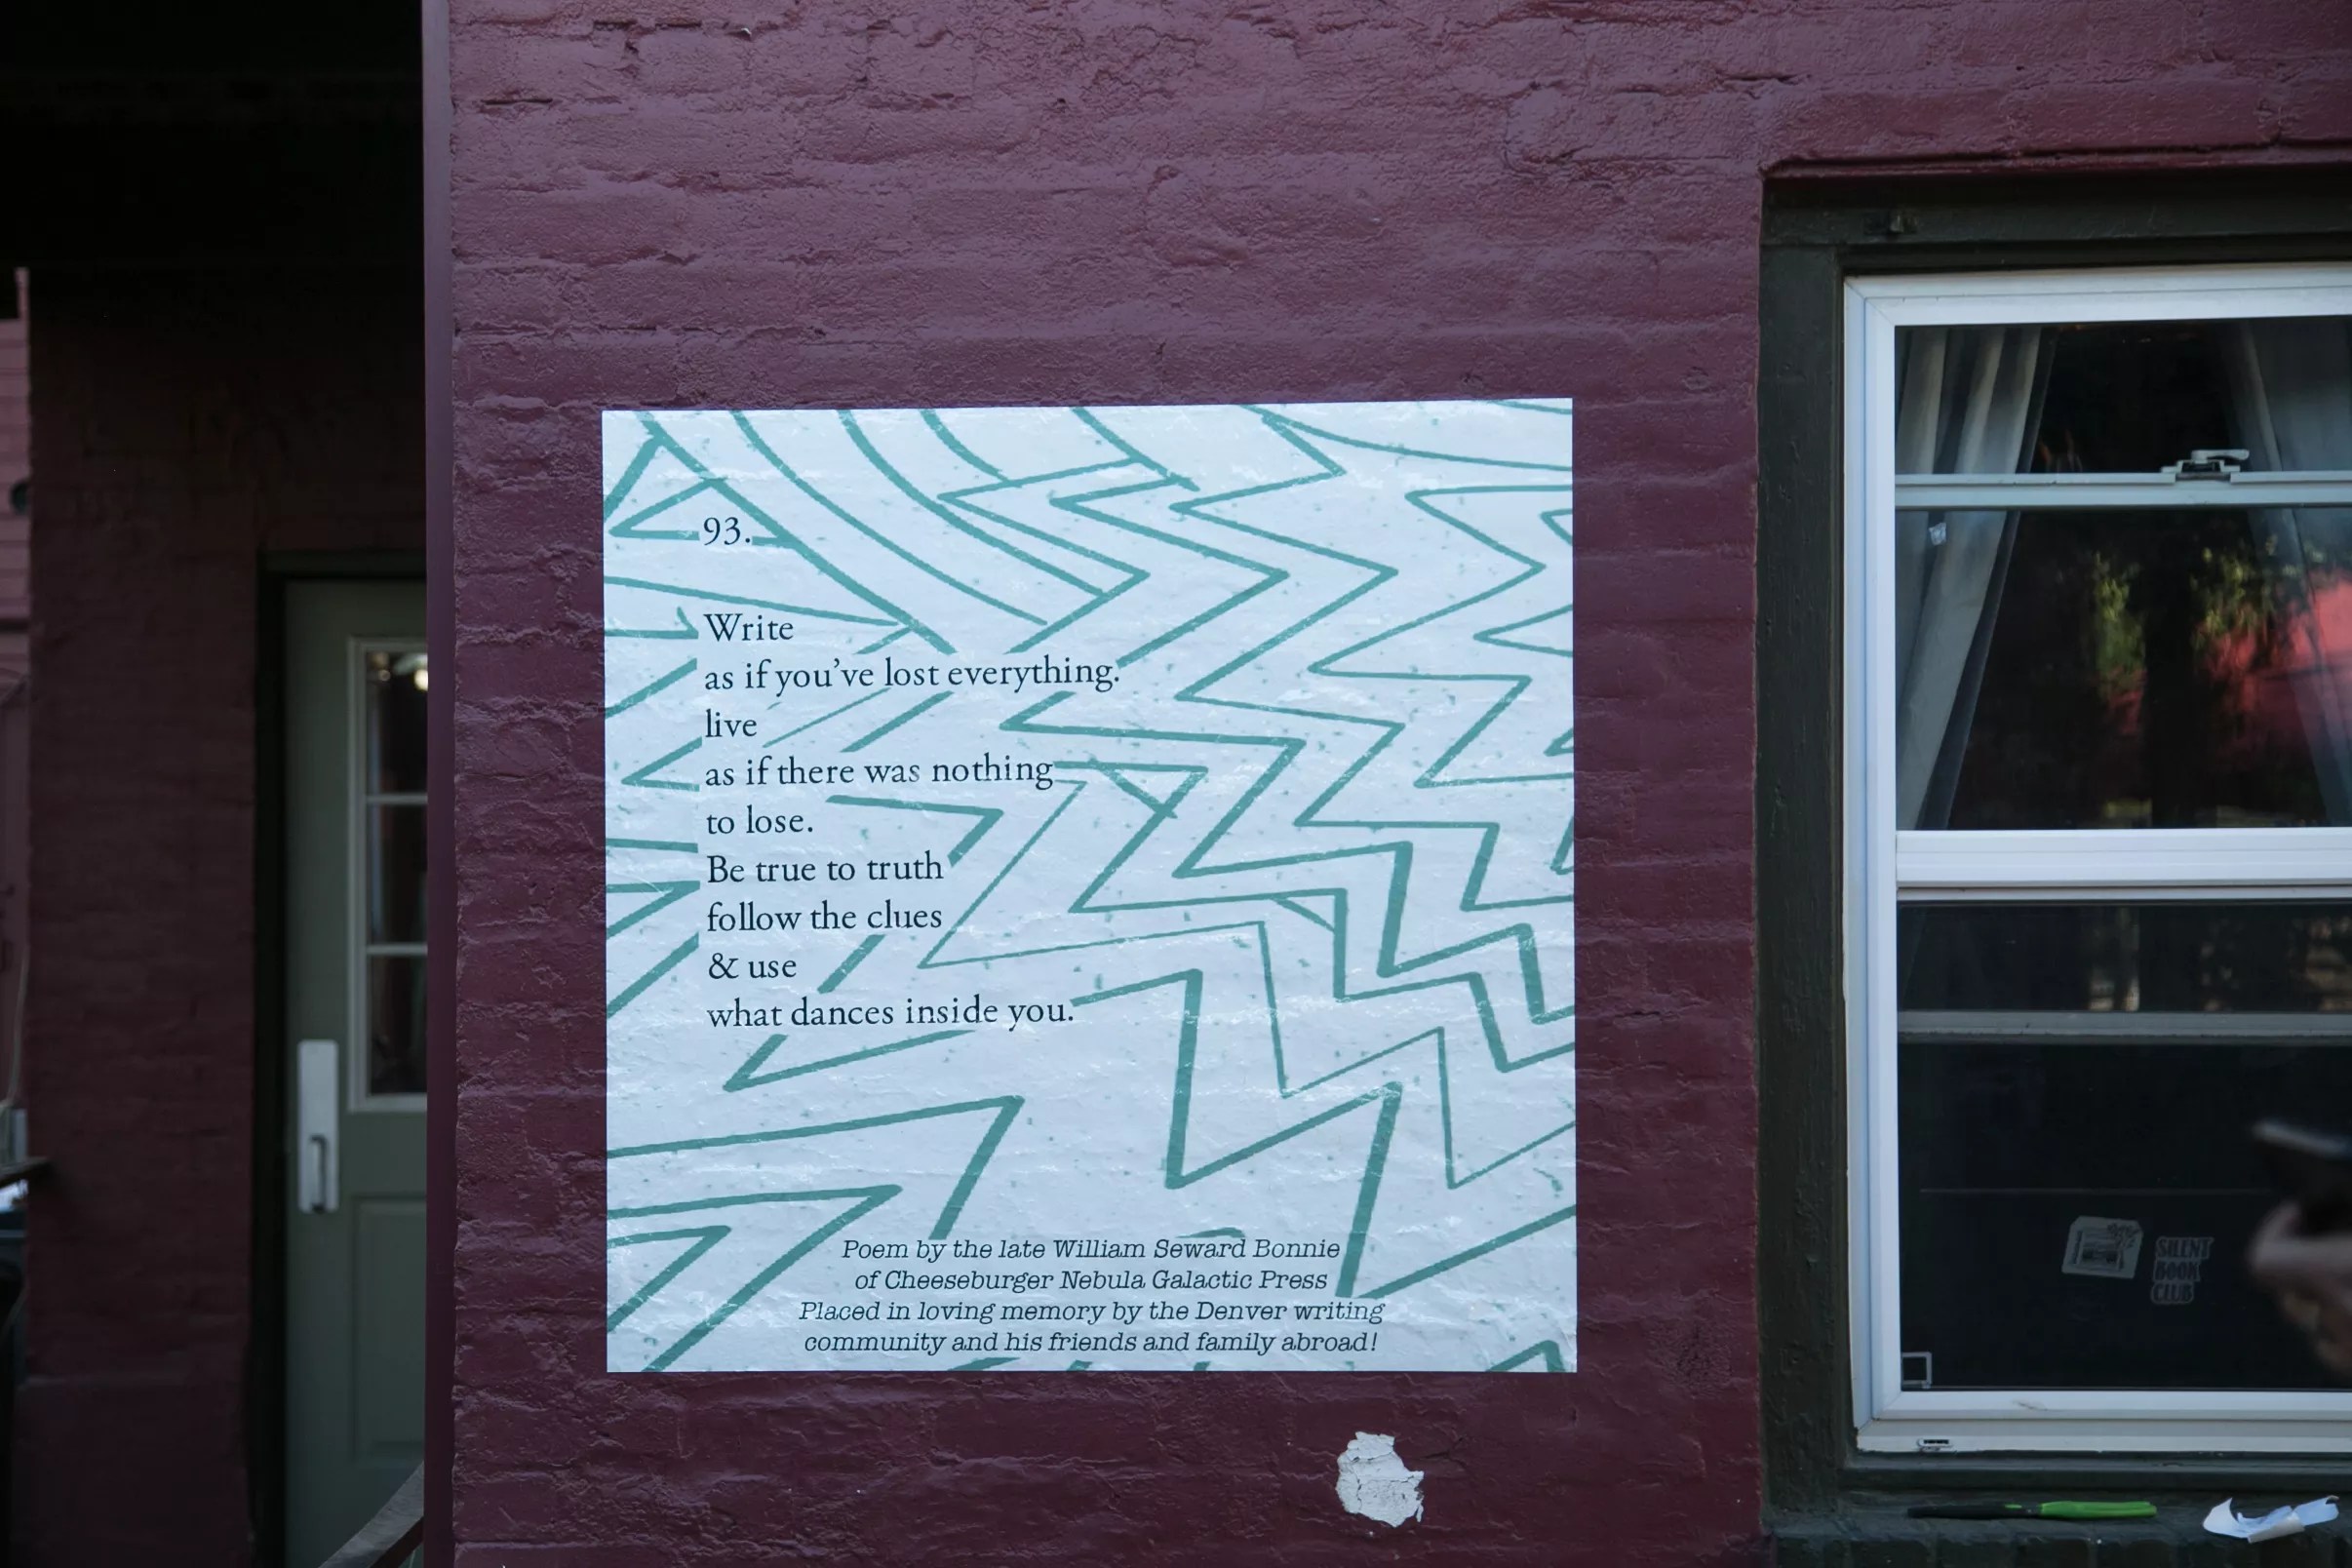 93.
Write
as if you've lost everything.
live
as if there was nothing
to lose.
Be true to truth
follow the clues
& use
what dances inside you.
Poem by the late William Seward Bonnie
of Cheeseburger Nebula Galactic Press
Placed in loving memory by the Denver writing
community and his friends and family abroad!
SILENT
BOOK
CLUB